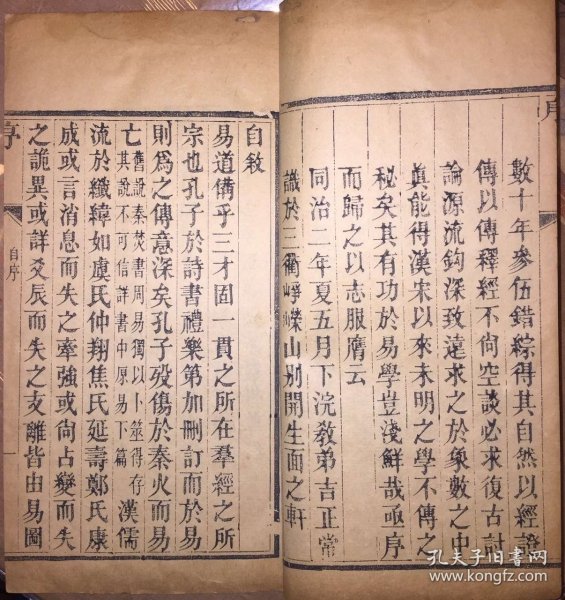 序
數十年參伍錯綜得其自然以經證
傳以傳釋經不尙空談必求復古討
論源流鈎深致遠求之於象數之中
眞能得漢宋以來未明之學不傳之
秘矣其有功於易學豈淺鮮哉亟序
而歸之以志服膺云
同治二年夏五月下浣敎弟吉正常
識於三衢崢嶸山別開生面之軒
自敘
易道備乎三才固一貫之所在羣經之所
宗也孔子於詩書禮樂第加刪訂而於易
則爲之傳意深矣孔子殁傷於秦火而易
亡舊說秦焚書周易獨以卜筮得存其說不可信詳書中原易下篇漢儒
流於纖緯如虞氏仲翔焦氏延壽鄭氏康
成或言消息而失之牽強或尙占變而失
之詭異或詳爻辰而失之支離皆由易圖
序
自序
一
孔夫子旧书网
www.kongfz.com